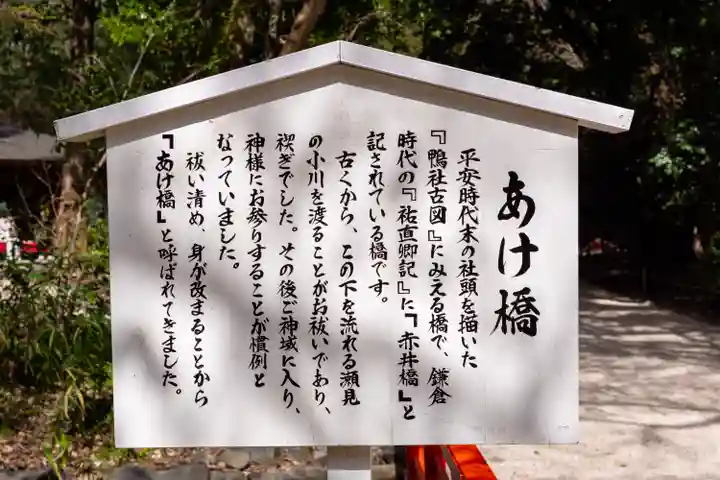 あけ橋
平安時代末の社頭を描いた
『鴨社古図』にみえる橋で、鎌倉
時代の『祐直卿記』に「赤井橋」と
記されている橋です。
古くから、この下を流れる瀬見
の小川を渡ることがお祓いであり、
禊ぎでした。その後ご神域に入り、
神様にお参りすることが慣例と
なっていました。
祓い清め、身が改まることから
「あけ橋」と呼ばれてきました。